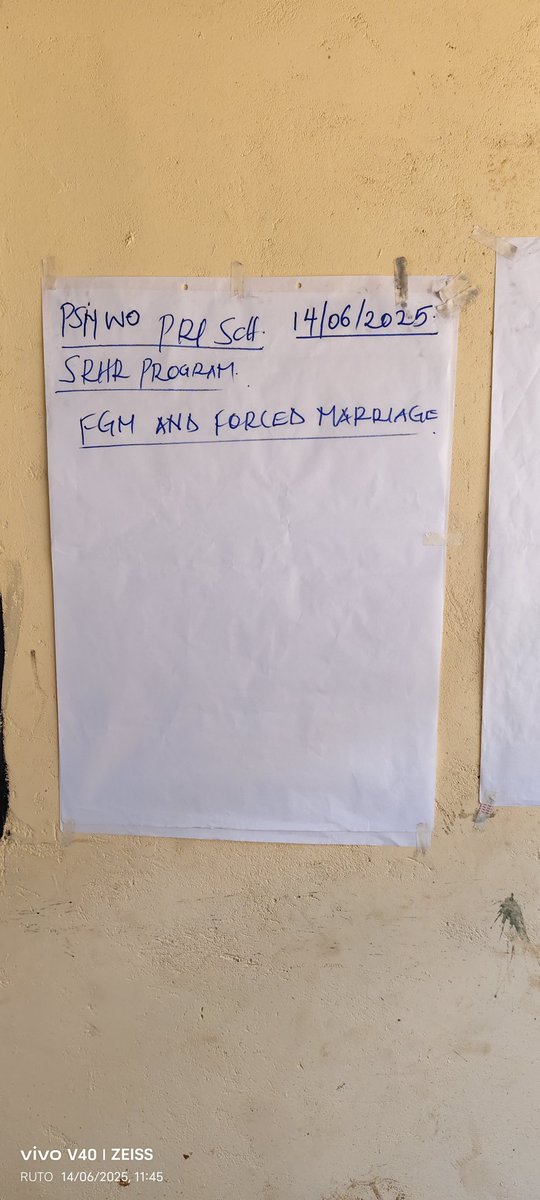 PRI SCH. 14/06/2025.
SRHR PROGRAM.
FGM AND FORCED MARRIAGE.
vivo V40 | ZEISS
RUTO 14/06/2025, 11:45